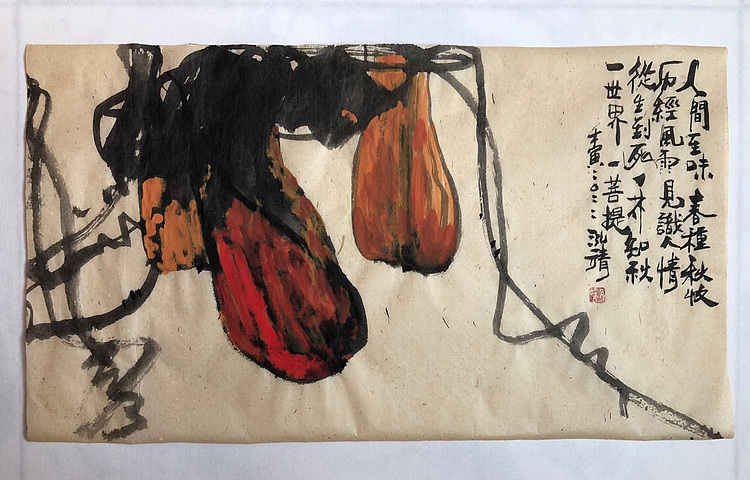 人間至味春種秋收
历經風雨見識人情
從生到死一知秋
一世界一菩提
壬寅二〇二二